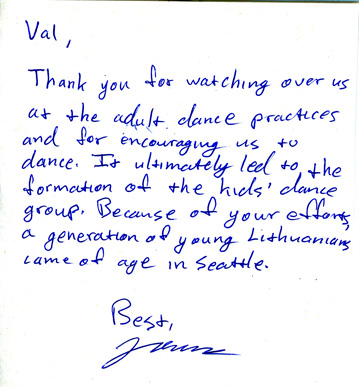 Val,
Thank you for watching over us
at the adult dance practices
and for encouraging us to
dance. It ultimately led to the
formation of the kids' dance
group. Because of your efforts,
a generation of young Lithuanians
came of age in Seattle.
Best,